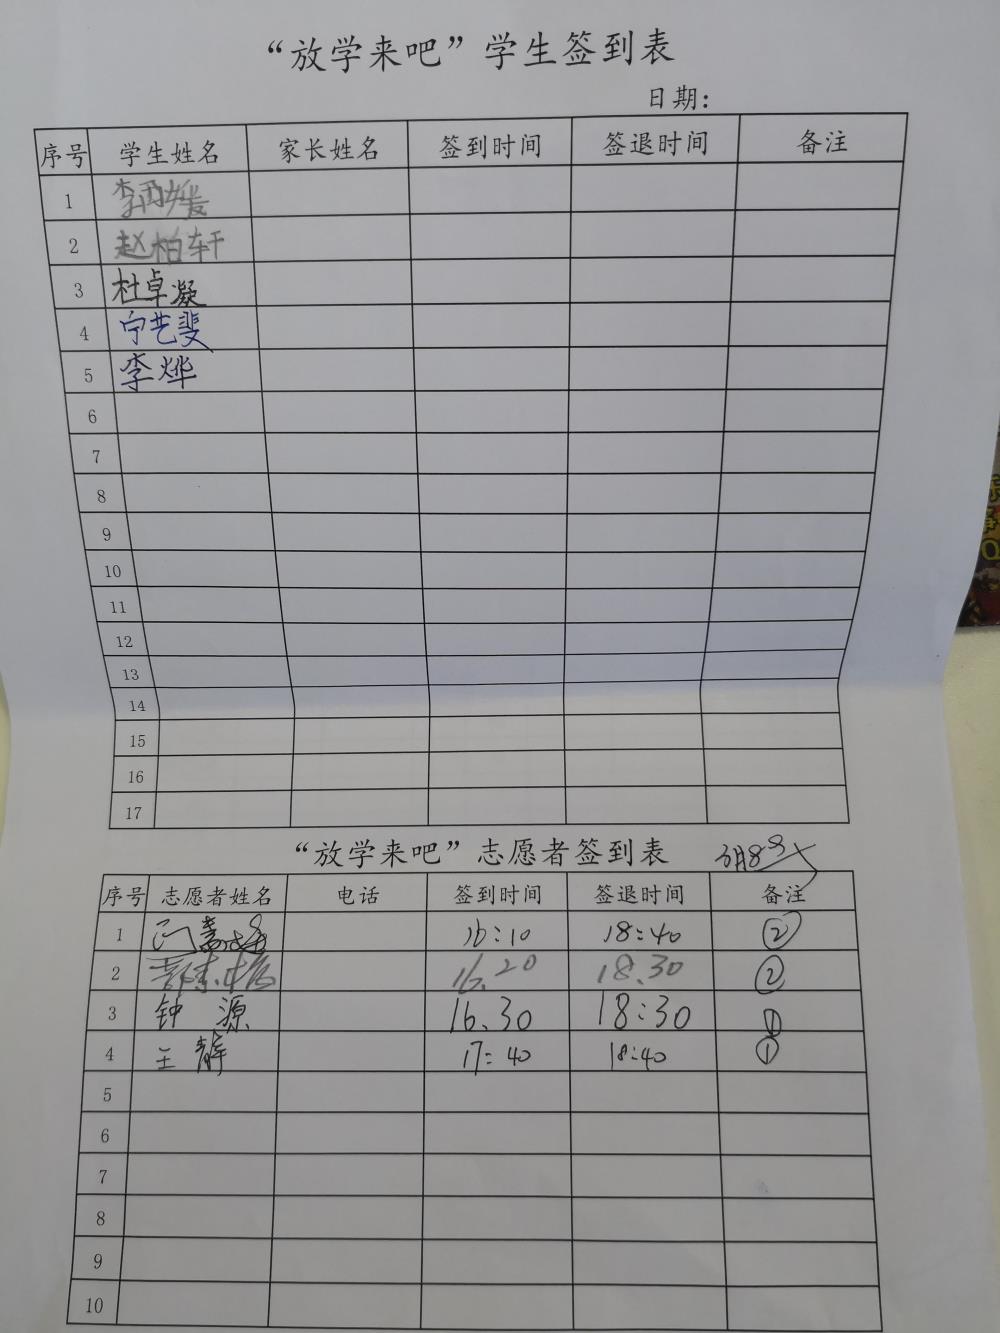 “放学来吧”学生签到表
日期：
序号 学生姓名 家长姓名 签到时间 签退时间 备注
1 李雨媛
2 赵柏轩
3 杜卓凝
4 宁艺斐
5 李烨
6
7
8
9
10
11
12
13
14
15
16
17
“放学来吧”志愿者签到表 3月8号
序号 志愿者姓名 电话 签到时间 签退时间 备注
1 16:10 18:40 ②
2 16.20 18.30 ②
3 钟源 16.30 18:30 ①
4 王静 17:40 18:40 ①
5
6
7
8
9
10